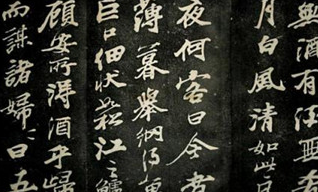 無酒有酒無
月白風清如此
夜何客曰今者
薄暮舉網得
巨口細狀松江之鱸
顧安所得酒乎歸
而謀諸婦〻曰